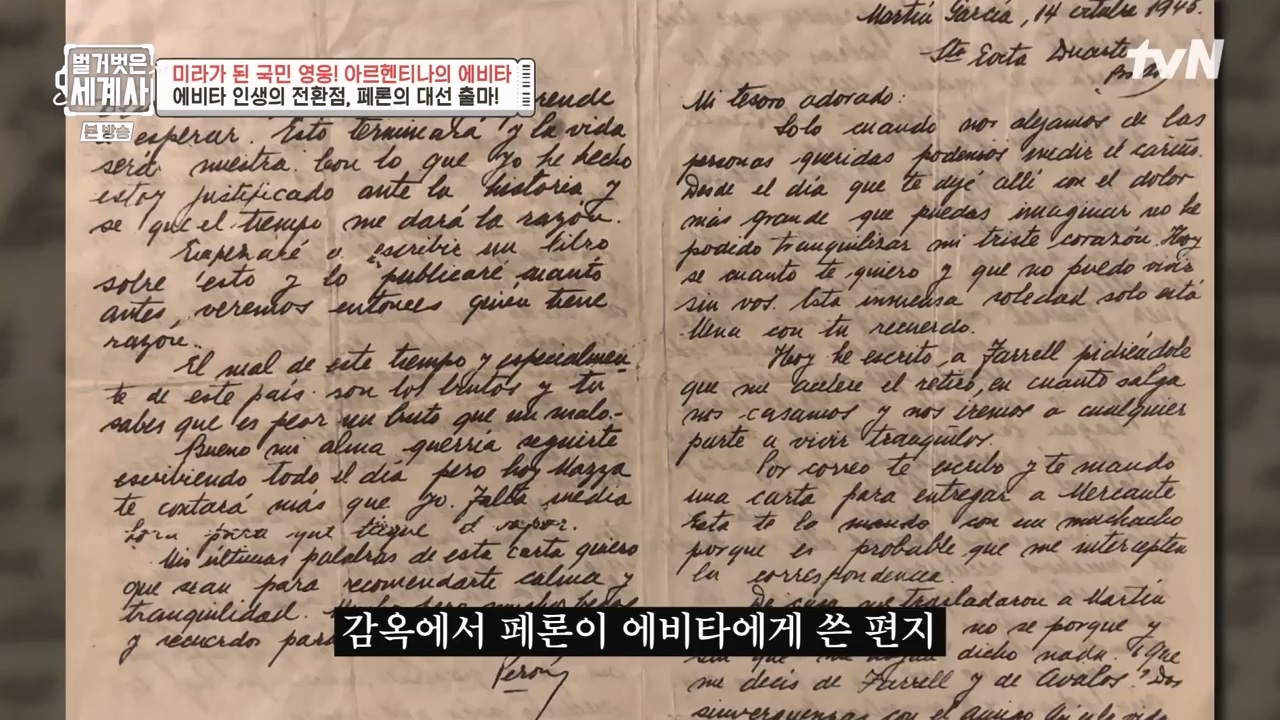 벌거벗은
세계사
본 방송
미라가 된 국민 영웅! 아르헨티나의 에비타
에비타 인생의 전환점, 페론의 대선 출마!
tvN
esperar. Esto terminará y la vida
será nuestra. Con lo que yo he hecho
estoy justificado ante la historia y
se que el tiempo me dará la razón.
Empezaré a escribir un libro
sobre esto y lo publicaré cuanto
antes, veremos entonces quién tiene
razón.
El mal de este tiempo y especialmen
te de este país son los brutos y tú
sabes que es peor un bruto que un malo.-
Bueno mi alma querría seguirte
escribiendo todo el día pero hoy Mazza
te contará más que yo. Falta media
hora para que llegue el vapor.
Mis últimas palabras de esta carta quiero
que sean para recomendarte calma y
tranquilidad.
y recuerdos para
Perón
Martín García, 14 octubre 1945.
Sta Evita Duarte
Mi tesoro adorado:
Solo cuando nos alejamos de las
personas queridas podemos medir el cariño.
Desde el día que te dejé allí con el dolor
más grande que puedas imaginar no he
podido tranquilizar mi triste corazón. Hoy
se cuanto te quiero y que no puedo vivir
sin vos. Esta inmensa soledad solo está
llena con tu recuerdo.
Hoy he escrito a Farrell pidiéndole
que me acelere el retiro, en cuanto salga
nos casamos y nos iremos a cualquier
parte a vivir tranquilos.
Por correo te escribo y te mando
una carta para entregar a Mercante
Esta te la mando con un muchacho
porque es probable que me intercepten
la correspondencia.
De casa me trasladaron a Martín
no se porque y
dicho nada. ¿Que
me decis de Farrell y de Avalos? Dos
sinverguenzas con el amigo
감옥에서 페론이 에비타에게 쓴 편지